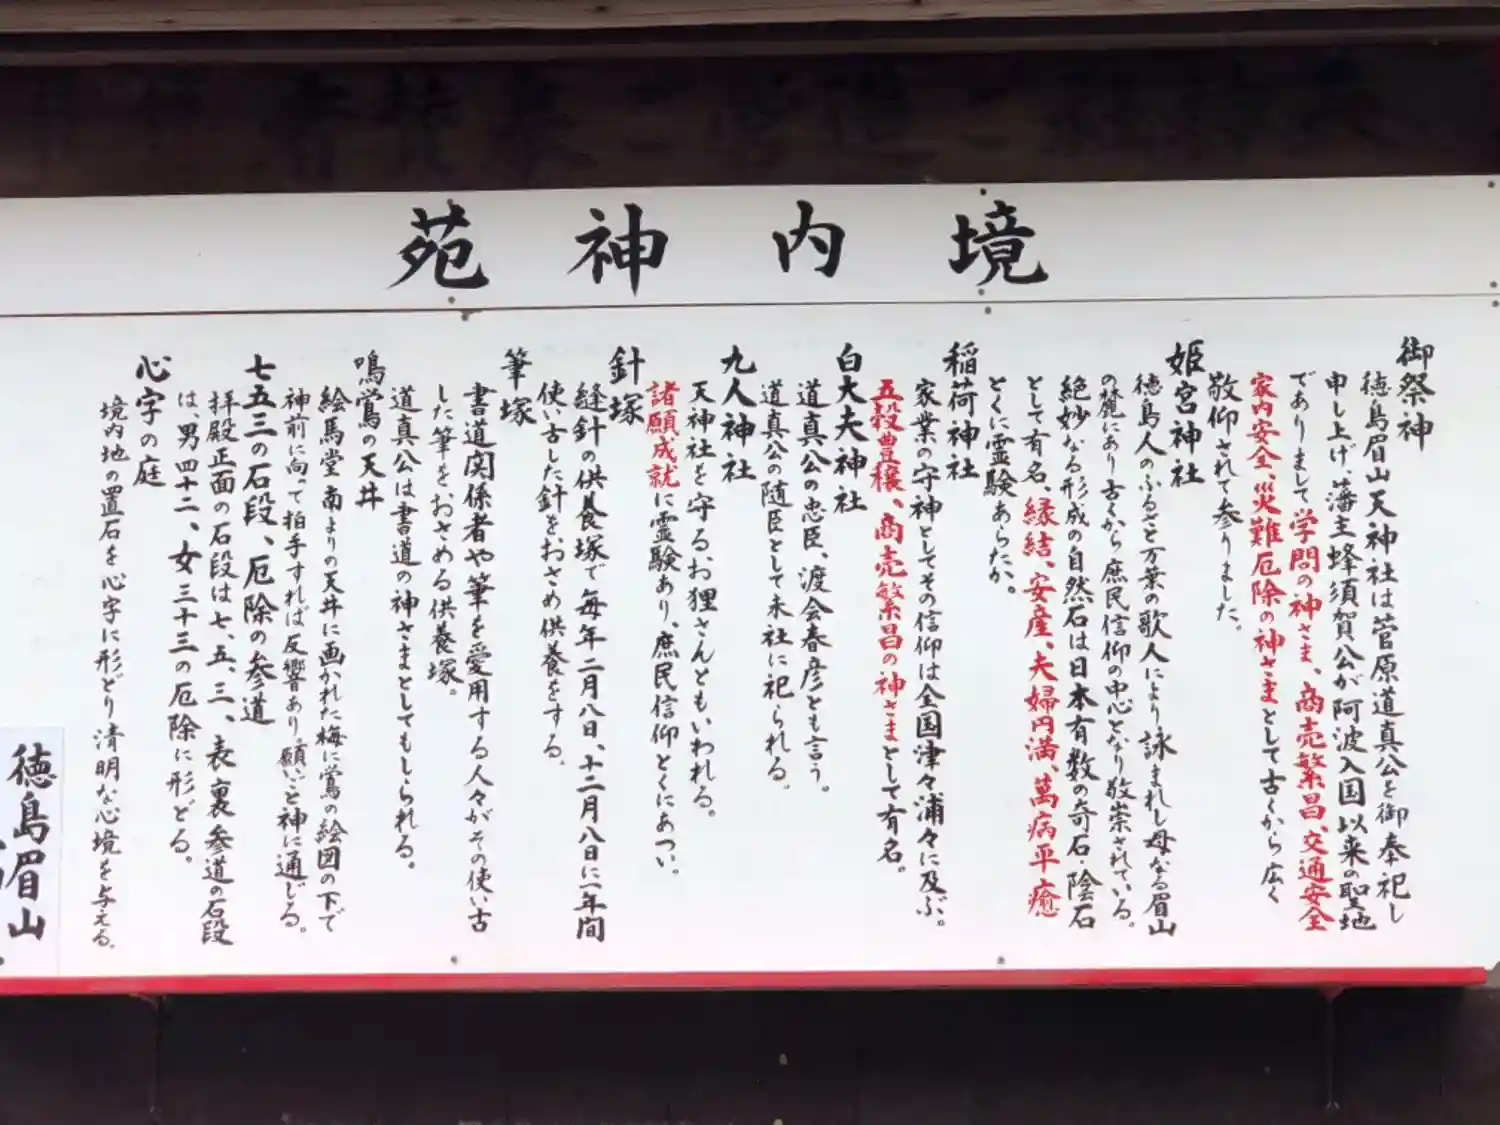 境内神苑
御祭神
徳島眉山天神社は菅原道真公を御奉祀し
申し上げ、藩主蜂須賀公が阿波入国以来の聖地
でありまして学問の神さま、商売繁昌、交通安全
家内安全、災難厄除の神さまとして古くから広く
敬仰されて参りました。
姫宮神社
徳島人のふるさと万葉の歌人により、詠まれし母なる眉山
の麓にあり古くから庶民信仰の中心となり敬崇されている。
絶妙なる形成の自然石は日本有数の奇石・陰石
として有名。縁結、安産、夫婦円満、萬病平癒
とくに霊験あらたか。
稲荷神社
家業の守神としてその信仰は全国津々浦々に及ぶ。
五穀豊穣、商売繁昌の神さまとして有名。
白大夫神社
道真公の忠臣、渡会春彦とも言う。
道真公の随臣として末社に祀られる。
九人神社
天神社を守るお狸さんともいわれる。
諸願成就に霊験あり、庶民信仰とくにあつい。
針塚
縫針の供養塚で毎年二月八日、十二月八日に一年間
使い古した針をおさめ供養をする。
筆塚
書道関係者や筆を愛用する人々がその使い古
した筆をおさめる供養塚。
道真公は書道の神さまとしてもしられる。
鳴鴬の天井
絵馬堂南よりの天井に画かれた梅に鴬の絵図の下で
神前に向って拍手すれば反響あり。願いごと神に通じる。
七五三の石段、厄除の参道
拝殿正面の石段は七、五、三、表裏参道の石段
は、男四十二、女三十三の厄除に形どる。
心字の庭
境内地の置石を心字に形どり清明な心境を与える。
徳島眉山